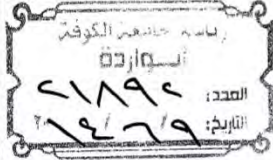 رئاسة جامعة الكوفة
الــواردة
العدد: ٢١٨٩٢
التاريخ: